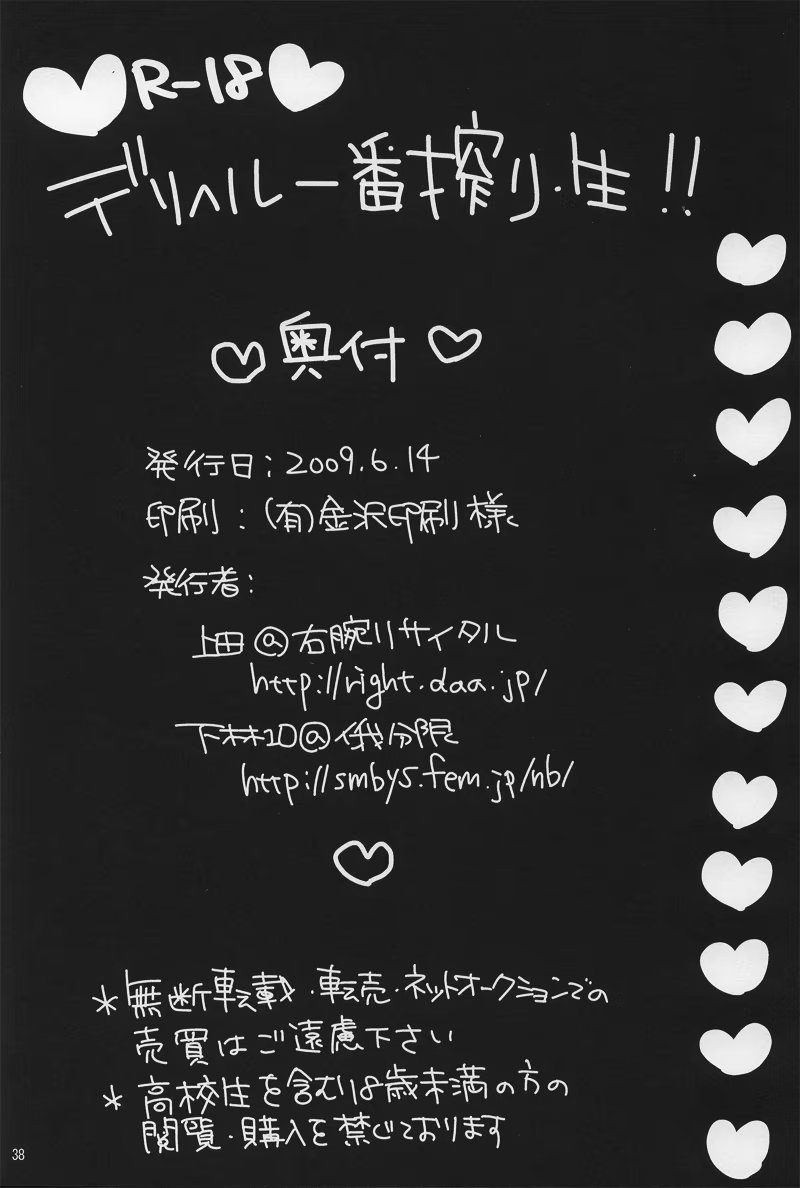 R-18
デリヘル一番搾り・生!!
奥付
発行日:2009.6.14
印刷:(有)金沢印刷様
発行者:
上田@右腕リサイタル
http://right.daa.jp/
下林10@俄分限
http://smbys.fem.jp/nb/
*無断転載・転売・ネットオークションでの
売買はご遠慮下さい
*高校生を含む18歳未満の方の
閲覧・購入を禁じております
38